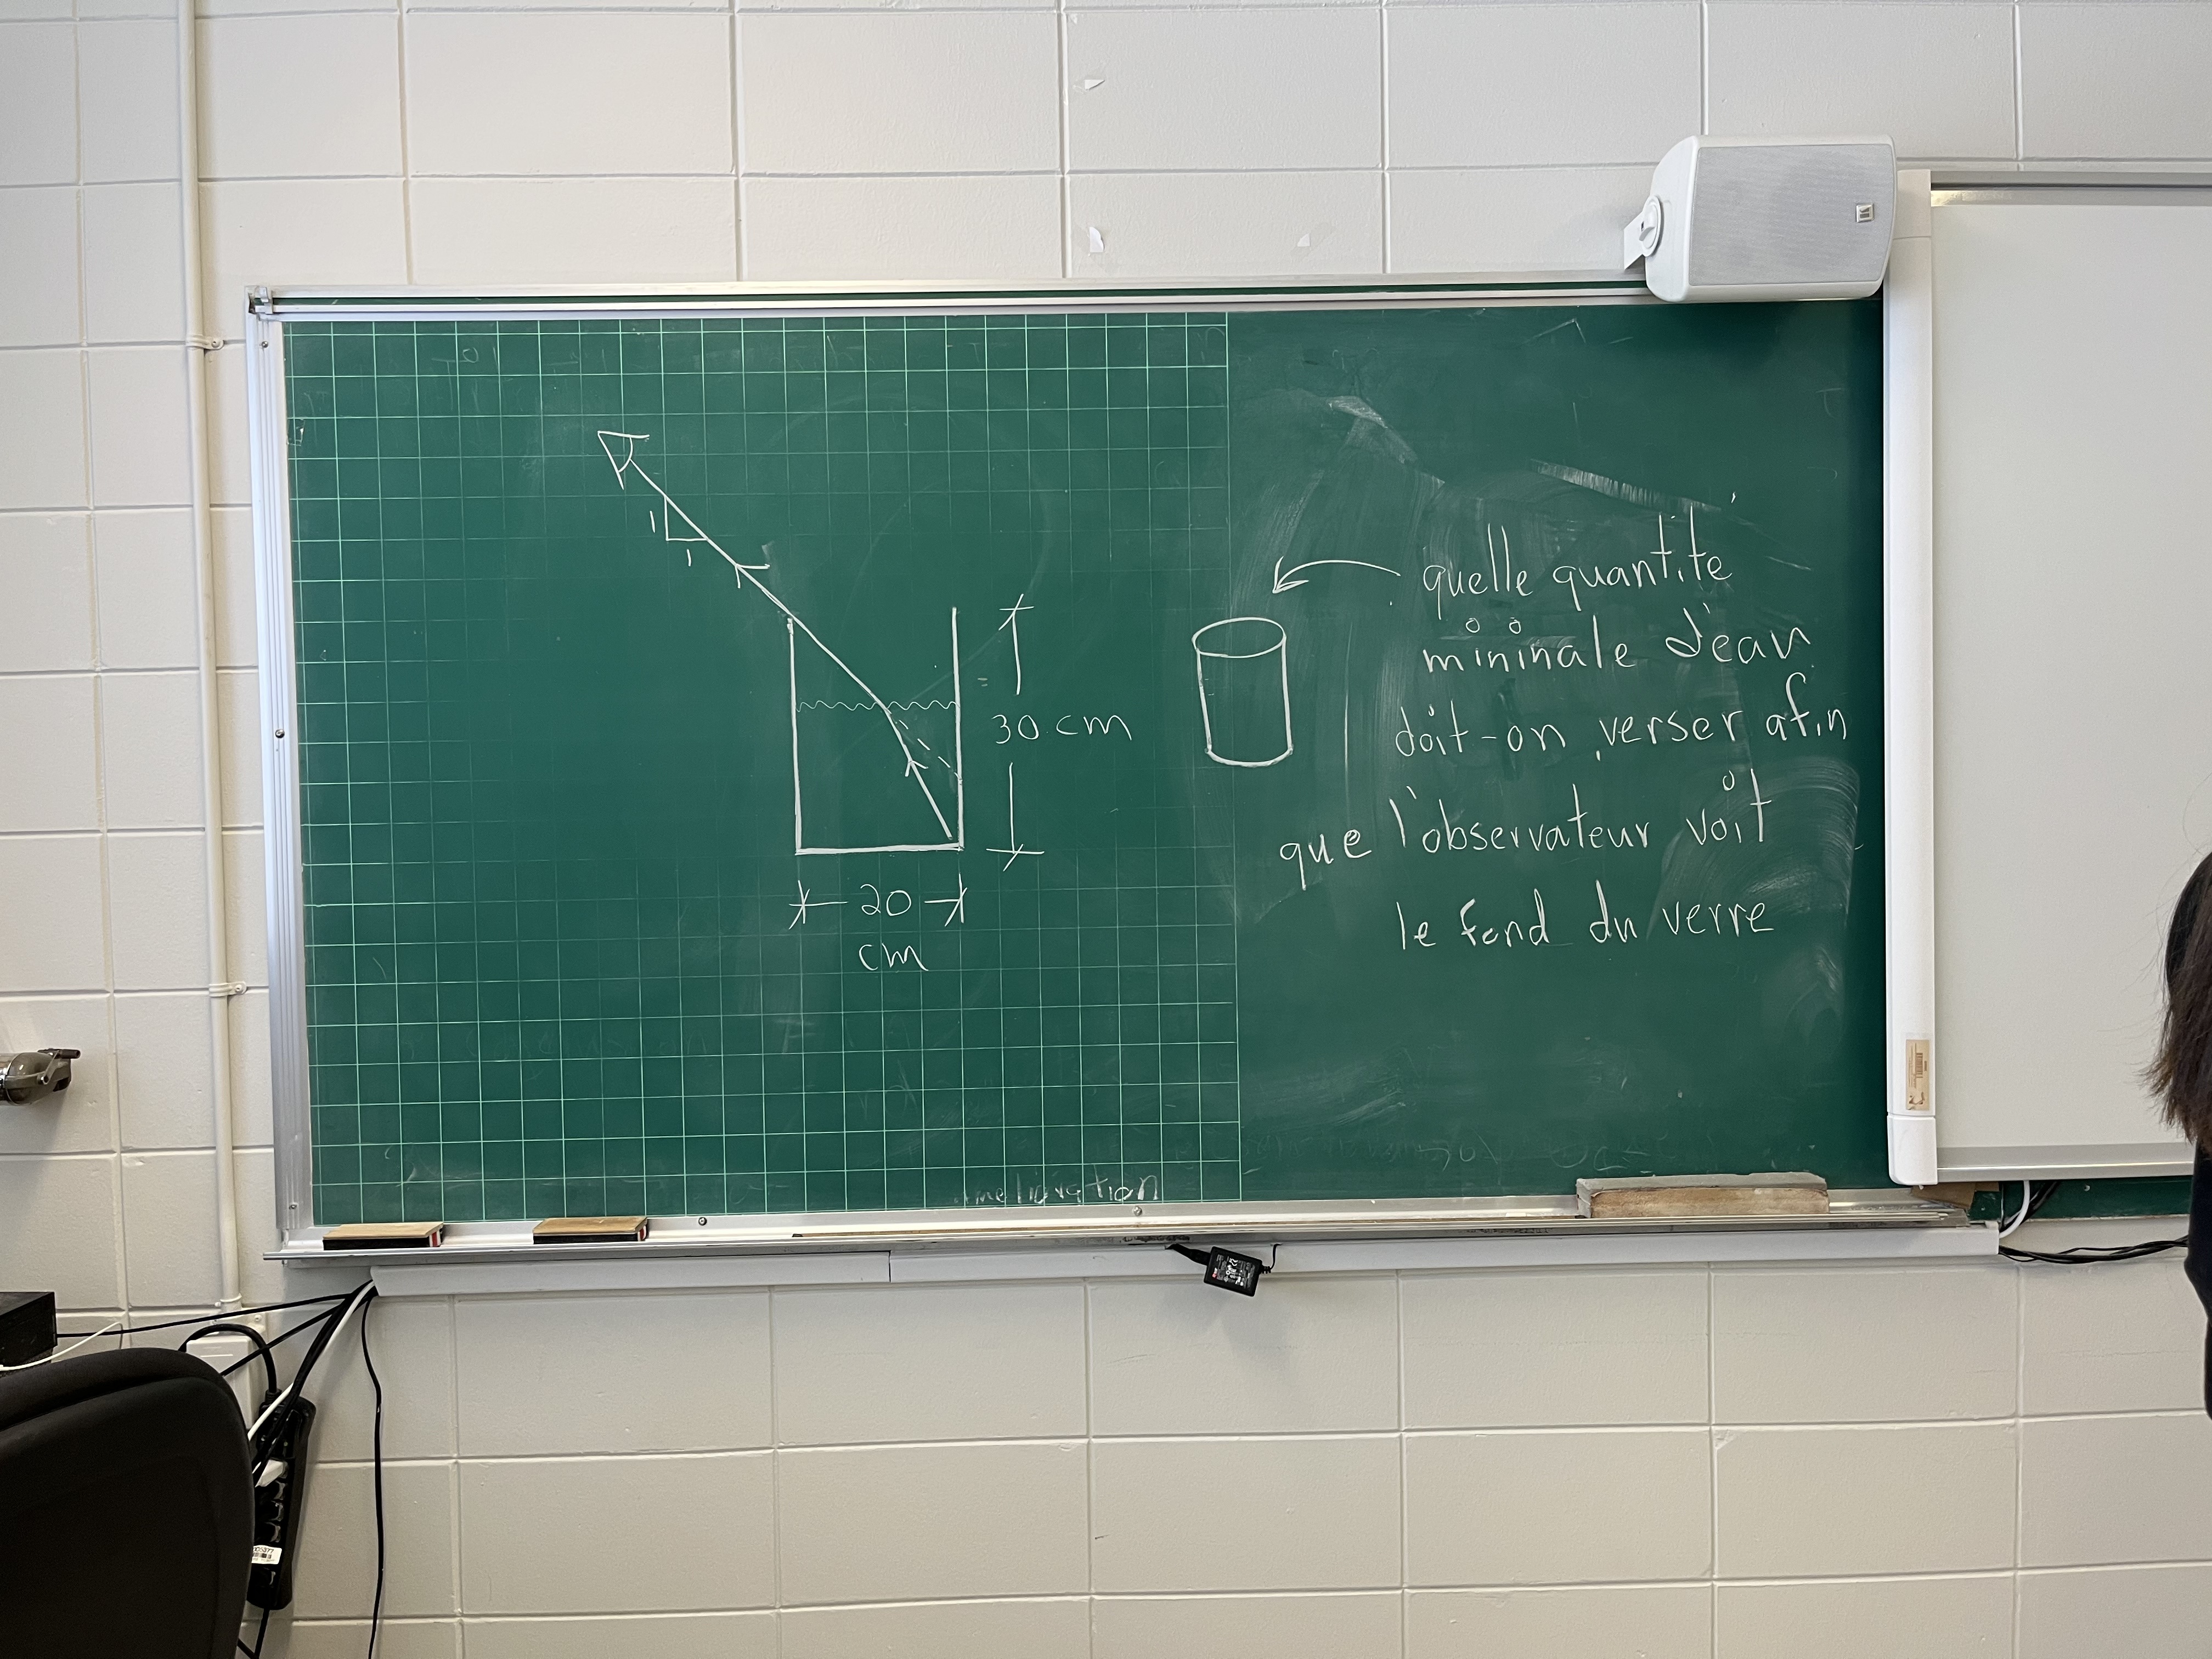 1
1
30 cm
20
cm
quelle quantité
mininale d'eau
doit-on verser afin
que l'observateur voit
le fond du verre
amelioration